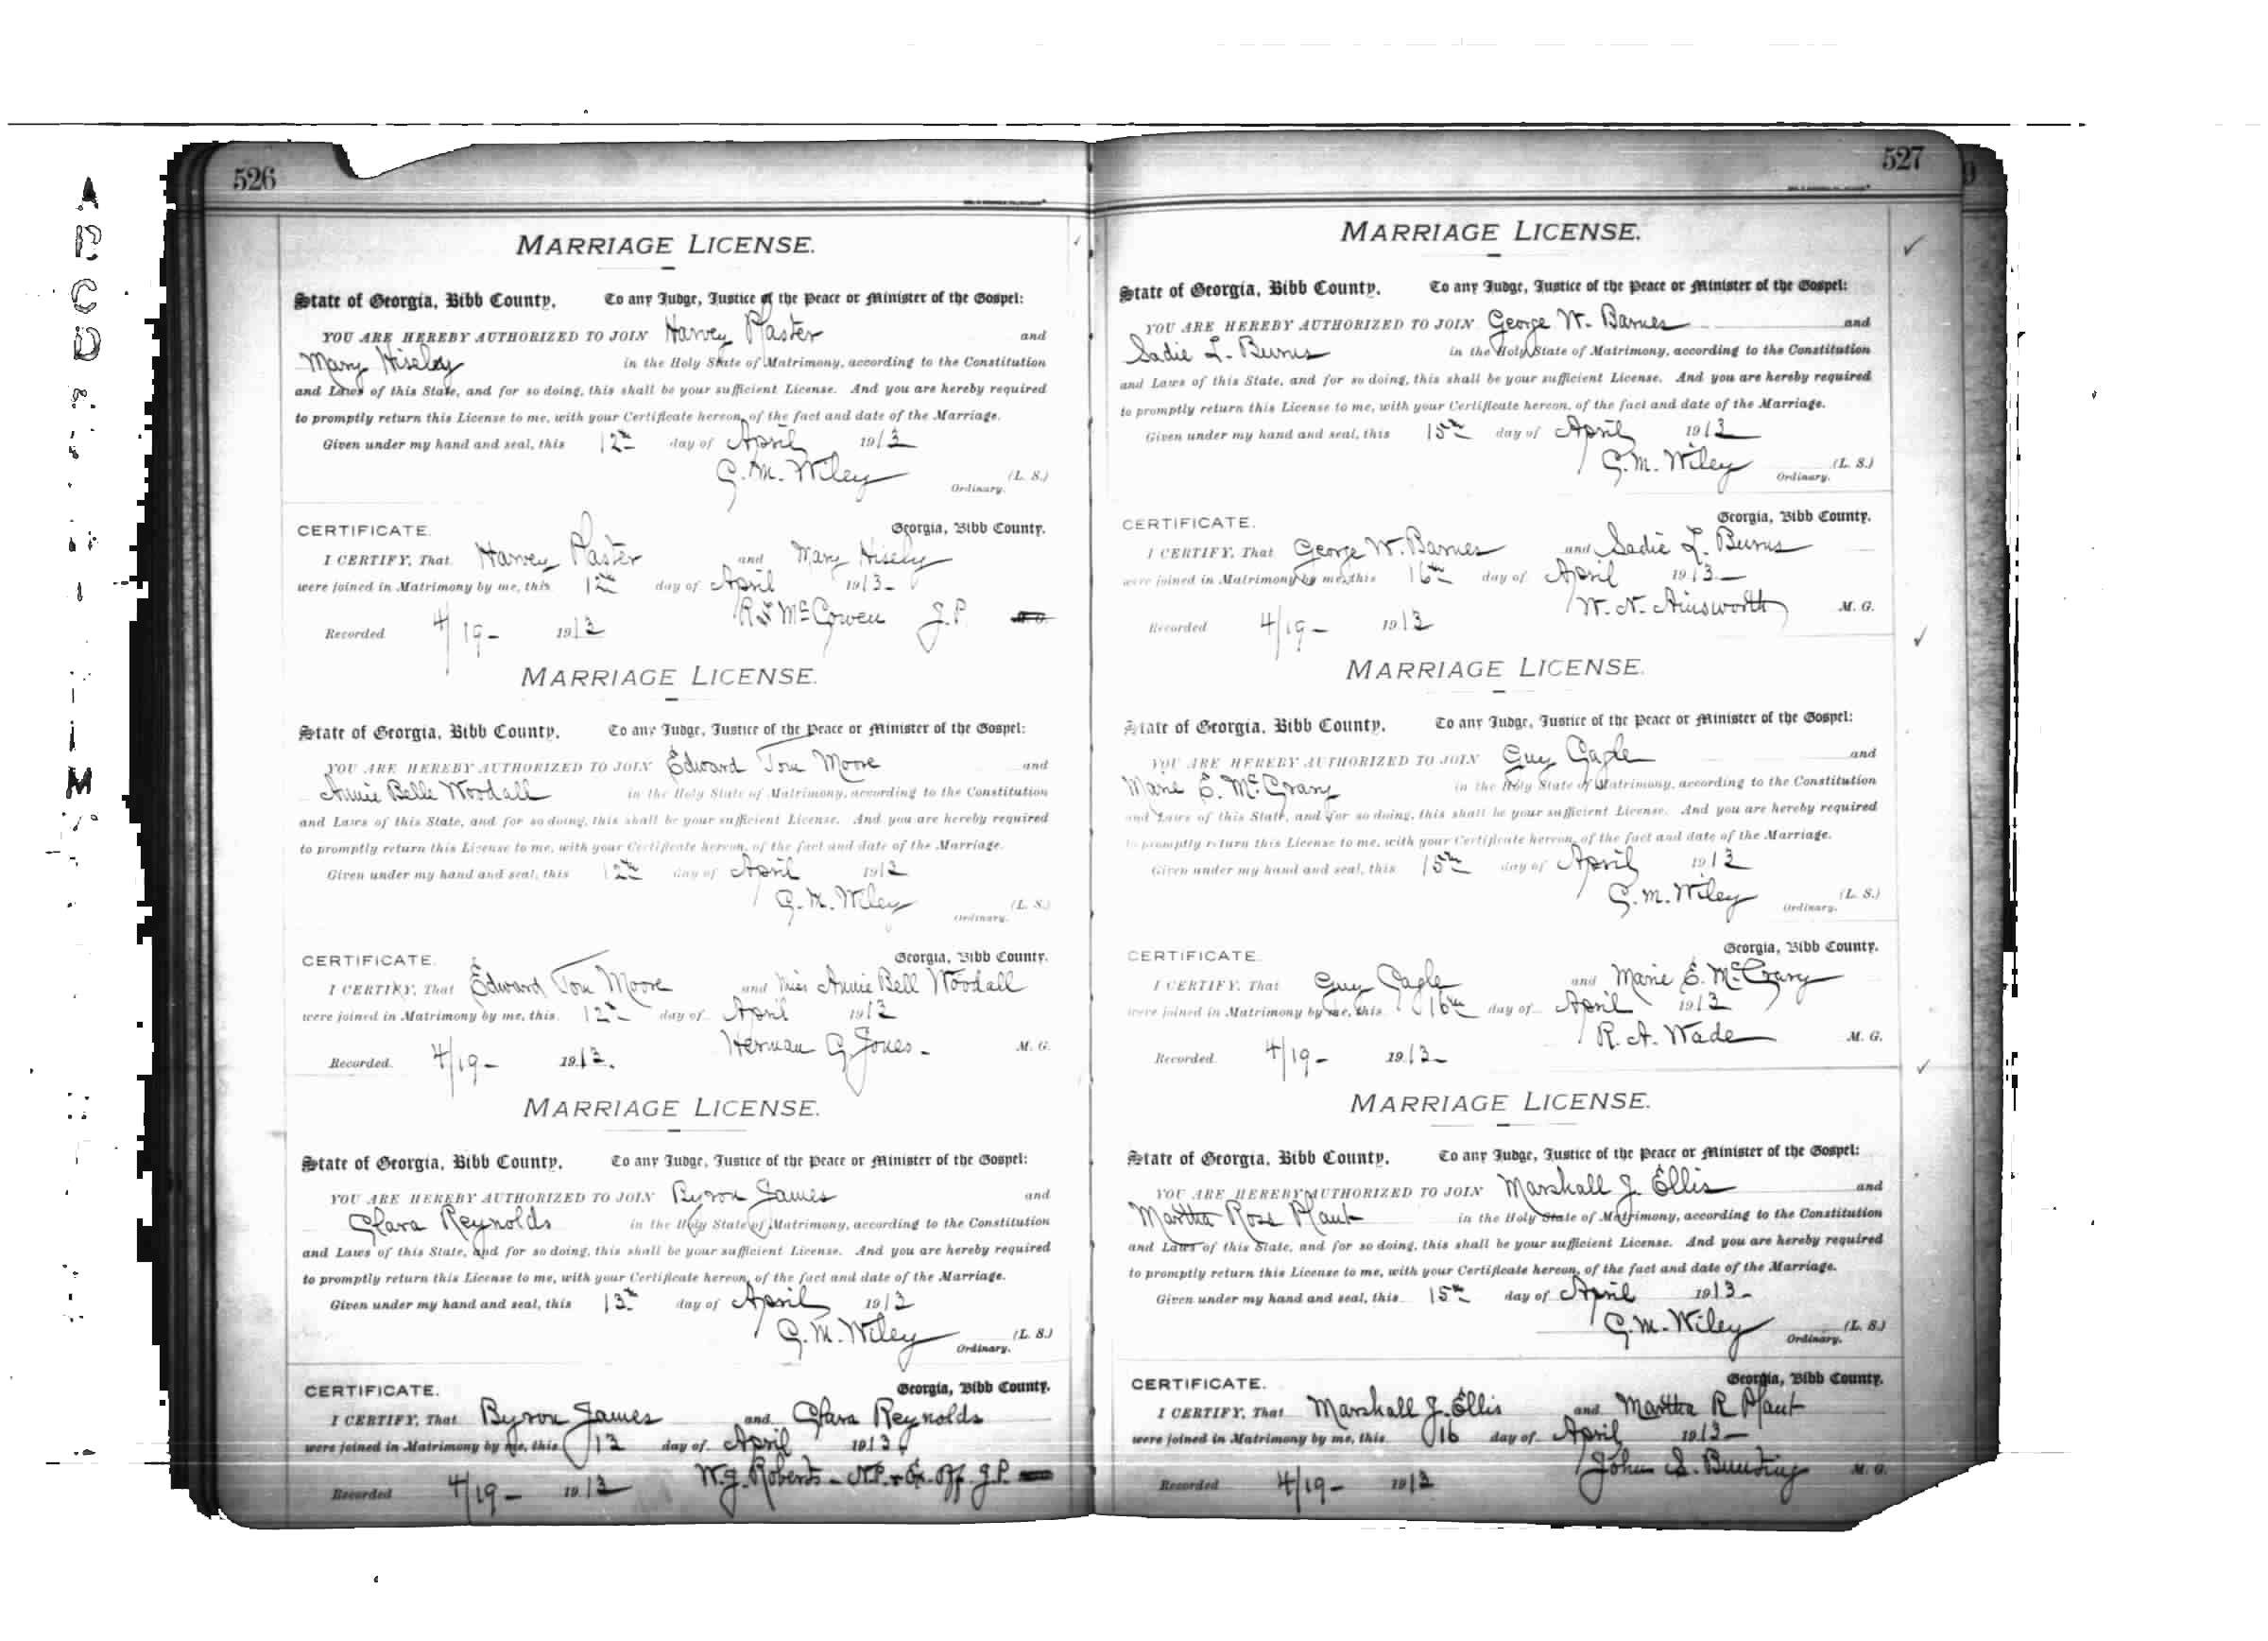 526
MARRIAGE LICENSE.
State of Georgia, Bibb County. To any Judge, Justice of the Peace or Minister of the Gospel:
YOU ARE HEREBY AUTHORIZED TO JOIN Harvey Plaster and
Mary Hiseley in the Holy State of Matrimony, according to the Constitution
and Laws of this State, and for so doing, this shall be your sufficient License. And you are hereby required
to promptly return this License to me, with your Certificate hereon, of the fact and date of the Marriage.
Given under my hand and seal, this 12th day of April 1913
G. M. Wiley (L. S.)
Ordinary.
CERTIFICATE. Georgia, Bibb County.
I CERTIFY, That Harvey Plaster and Mary Hisely
were joined in Matrimony by me, this 12th day of April 1913-
R S McCowen J.P.
Recorded 4/19- 1913
MARRIAGE LICENSE.
State of Georgia, Bibb County. To any Judge, Justice of the Peace or Minister of the Gospel:
YOU ARE HEREBY AUTHORIZED TO JOIN Edward Tom Moore and
Annie Belle Woodall in the Holy State of Matrimony, according to the Constitution
and Laws of this State, and for so doing, this shall be your sufficient License. And you are hereby required
to promptly return this License to me, with your Certificate hereon, of the fact and date of the Marriage.
Given under my hand and seal, this 12th day of April 1913
G. M. Wiley (L. S.)
Ordinary.
CERTIFICATE. Georgia, Bibb County.
I CERTIFY, That Edward Tom Moore and Miss Annie Bell Woodall
were joined in Matrimony by me, this 12th day of April 1913
Herman G. Jones- M. G.
Recorded 4/19- 1913.
MARRIAGE LICENSE.
State of Georgia, Bibb County. To any Judge, Justice of the Peace or Minister of the Gospel:
YOU ARE HEREBY AUTHORIZED TO JOIN Byron James and
Clara Reynolds in the Holy State of Matrimony, according to the Constitution
and Laws of this State, and for so doing, this shall be your sufficient License. And you are hereby required
to promptly return this License to me, with your Certificate hereon, of the fact and date of the Marriage.
Given under my hand and seal, this 13th day of April 1913
G. M. Wiley (L. S.)
Ordinary.
CERTIFICATE. Georgia, Bibb County.
I CERTIFY, That Byron James and Clara Reynolds
were joined in Matrimony by me, this 13 day of April 1913.
W. J. Roberts- N.P. & Ex. Off. J.P.
Recorded 4/19- 1913
527
MARRIAGE LICENSE.
State of Georgia, Bibb County. To any Judge, Justice of the Peace or Minister of the Gospel:
YOU ARE HEREBY AUTHORIZED TO JOIN George W. Barnes and
Sadie L. Burns in the Holy State of Matrimony, according to the Constitution
and Laws of this State, and for so doing, this shall be your sufficient License. And you are hereby required
to promptly return this License to me, with your Certificate hereon, of the fact and date of the Marriage.
Given under my hand and seal, this 15th day of April 1913
G. M. Wiley (L. S.)
Ordinary.
CERTIFICATE. Georgia, Bibb County.
I CERTIFY, That George W. Barnes and Sadie L. Burns
were joined in Matrimony by me, this 16th day of April 1913-
W. N. Ainsworth M. G.
Recorded 4/19- 1913
MARRIAGE LICENSE.
State of Georgia, Bibb County. To any Judge, Justice of the Peace or Minister of the Gospel:
YOU ARE HEREBY AUTHORIZED TO JOIN Guy Cagle and
Marie E. McCrary in the Holy State of Matrimony, according to the Constitution
and Laws of this State, and for so doing, this shall be your sufficient License. And you are hereby required
to promptly return this License to me, with your Certificate hereon, of the fact and date of the Marriage.
Given under my hand and seal, this 15th day of April 1913
G. M. Wiley (L. S.)
Ordinary.
CERTIFICATE. Georgia, Bibb County.
I CERTIFY, That Guy Cagle and Marie E. McCrary
were joined in Matrimony by me, this 16th day of April 1913
R. A. Wade M. G.
Recorded 4/19- 1913-
MARRIAGE LICENSE.
State of Georgia, Bibb County. To any Judge, Justice of the Peace or Minister of the Gospel:
YOU ARE HEREBY AUTHORIZED TO JOIN Marshall J. Ellis and
Martha Rose Plant in the Holy State of Matrimony, according to the Constitution
and Laws of this State, and for so doing, this shall be your sufficient License. And you are hereby required
to promptly return this License to me, with your Certificate hereon, of the fact and date of the Marriage.
Given under my hand and seal, this 15th day of April 1913-
G. M. Wiley (L. S.)
Ordinary.
CERTIFICATE. Georgia, Bibb County.
I CERTIFY, That Marshall J. Ellis and Martha R Plant
were joined in Matrimony by me, this 16 day of April 1913-
John S. Bunting M. G.
Recorded 4/19- 1913